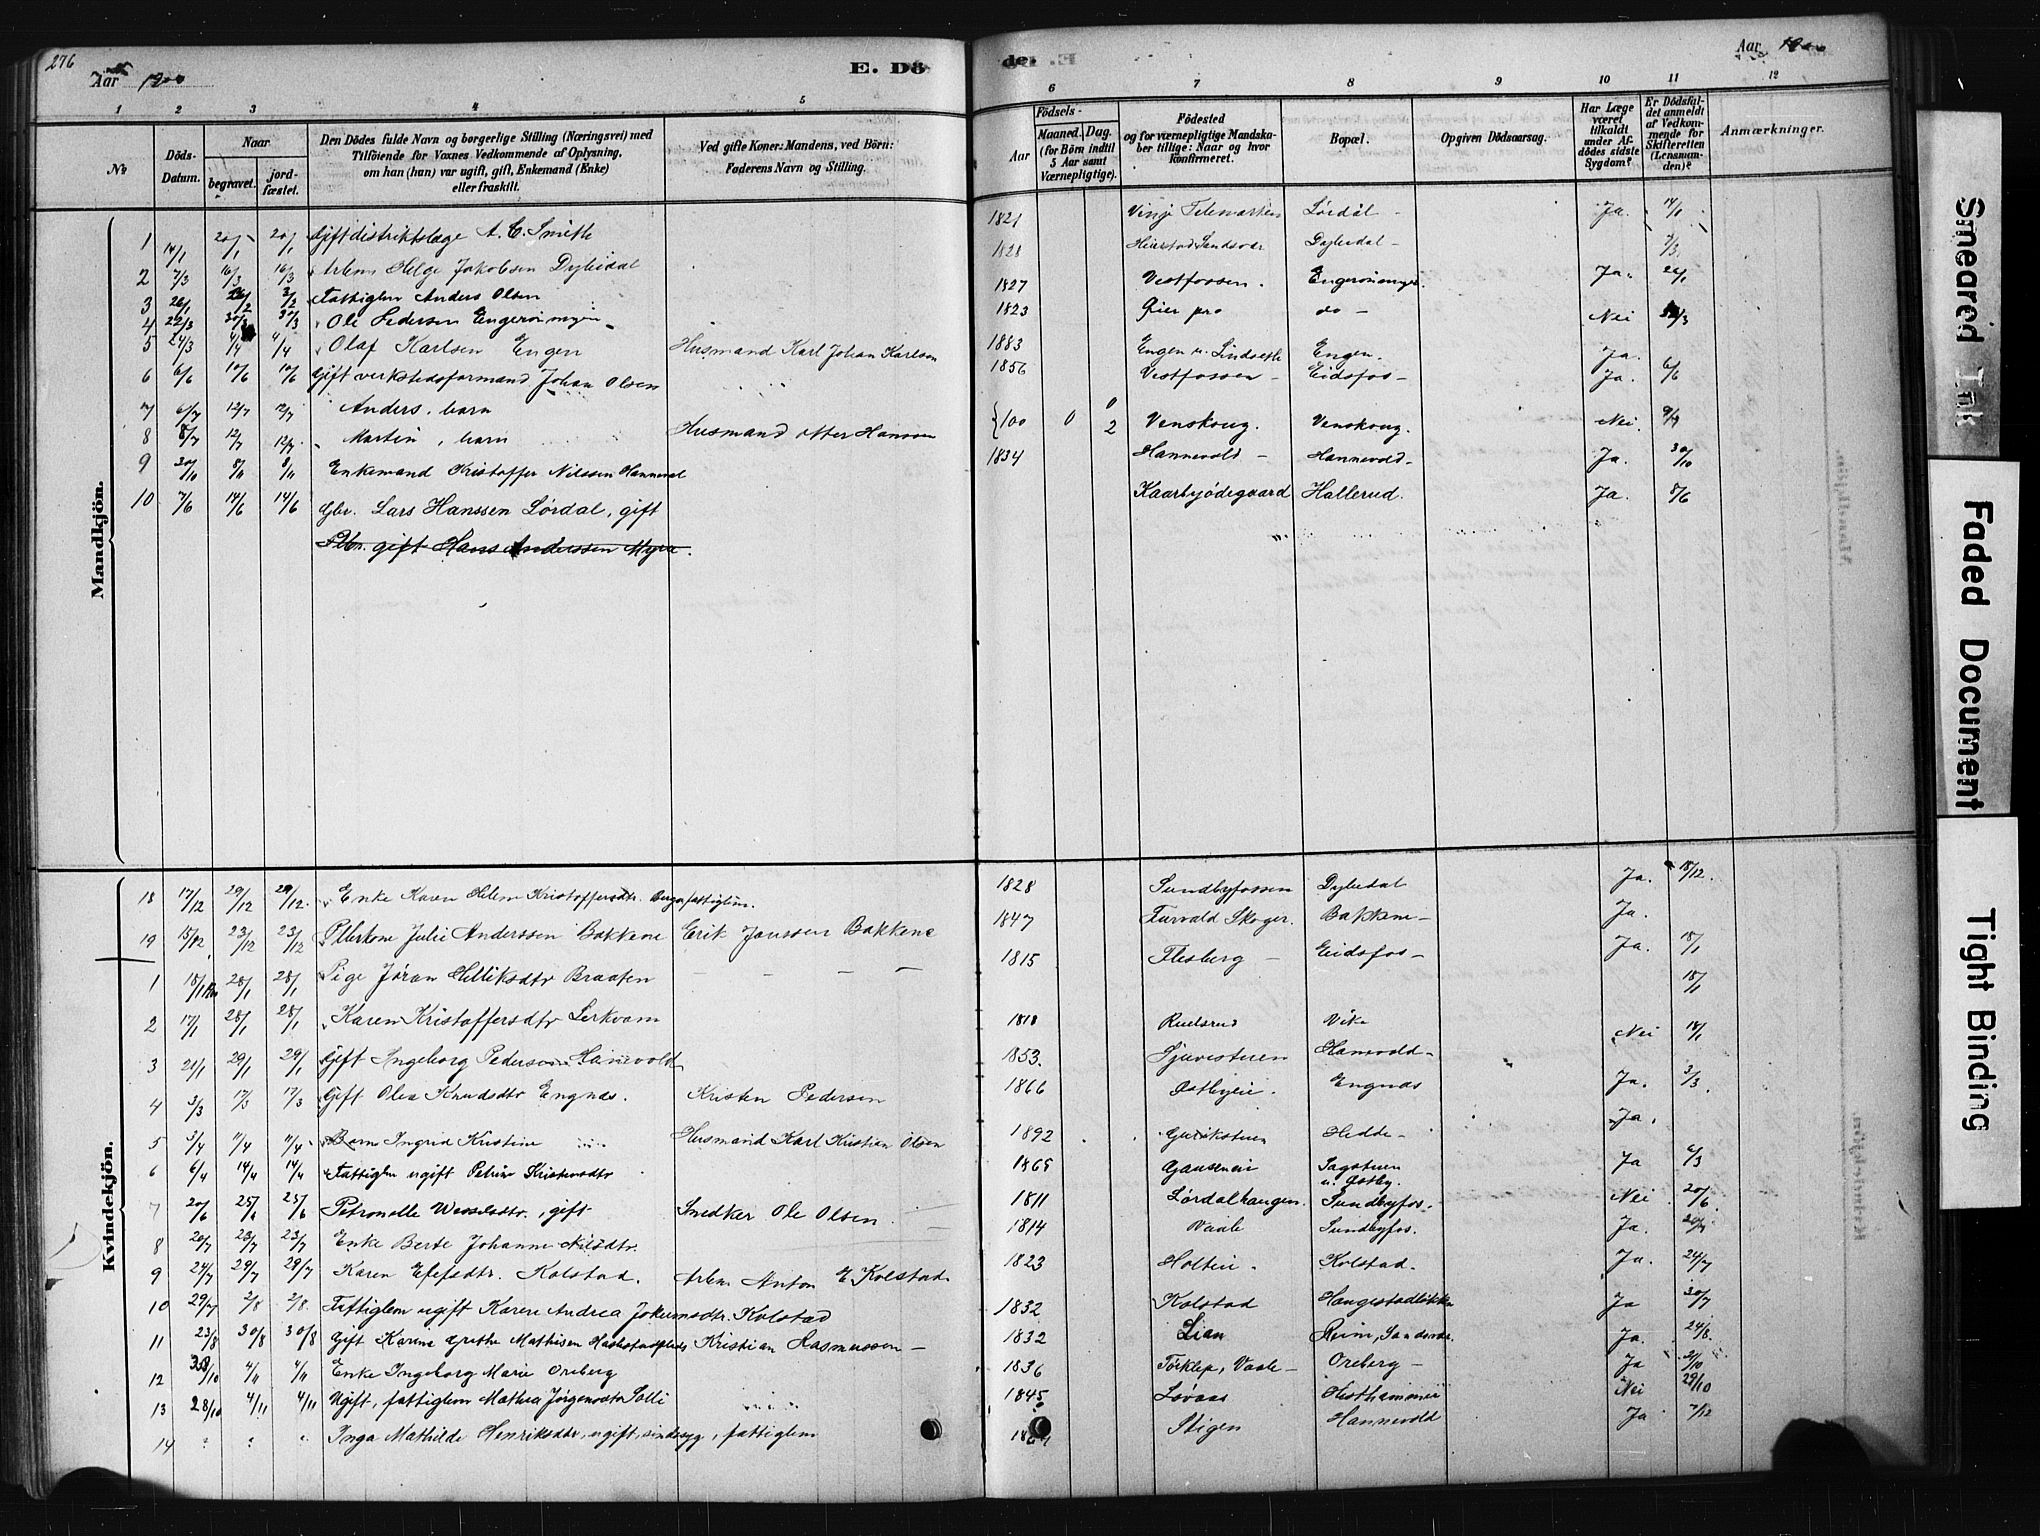 276
Aar 1900
E. Dö
de E.
Aar 1900
1 2 3 4 5 6 7 8 9 10 11 12
No
Döds-Datum.
Naar
begravet.
jordfæstet.
Den Dödes fulde Navn og borgerlige Stilling (Næringsvei) med
Tilföiende for Voxnes Vedkommende af Oplysning,
om han (hun) var ugift, gift, Enkemand (Enke)
eller fraskilt.
Ved gifte Koner: Mandens, ved Börn:
Faderens Navn og Stilling.
Födsels-
Aar
Maaned.
Dag.
(for Börn indtil
5 Aar samt
Værnepligtige).
Födested
og for værnepligtige Mandska-
ber tillige: Naar og hvor
konfirmeret.
Bopæl.
Opgiven Dödsaarsag.
Har Læge
været
tilkaldt
under Af-
dödes sidste
Sygdom?
Er Dödsfal-
det anmeldt
af Vedkom-
mende for
Skifteretten
(Lensman-
den)?
Anmærkninger.
Mandkjön.
1 14/1 20/1 20/1 Gift distriktslæge A. C. Smith 1821 Vinje Telemarken Lørdal - Ja. 14/1
2 7/3 16/3 16/3 Arbm Helge Jakobsen Dybedal 1828 Sandsvær Dybedal - 7/3
3 26/1 2/2 2/2 Fattiglem Anders Olsen 1827 Vestfossen. Ja. 26/1
4 22/3 30/3 30/3 Ole Pedersen 1823 Eier pro do - Nei
5 24/3 4/4 4/4 Olaf Karlsen Engen Husmand Karl Johan Karlsen 1883 Engen u. Lindseth Engen. Ja.
6 6/6 10/6 10/6 Gift verkstedsformand Johan Olsen 1856 Vestfossen - Eidsfos - Ja. 6/6
7 6/7 12/7 12/7 Anders, barn
8 8/7 12/7 12/7 Martin, barn Husmand Otter Hansen 100 0 0 2 Venskoug. Venskoug. Nei. 9/7
9 30/10 8/11 8/11 Enkemand Kristoffer Nilssen Hannevol 1834 Hannevold - Hannevold - Ja. 30/10
10 7/6 14/6 14/6 Gbr. Lars Hanssen Lørdal, gift Kaarbyødegaard Hallerud. Ja. 8/6
Pbr. gift Hans Anderssen Myra.
Kvindekjön.
18 17/12 29/12 29/12 Enke Karen Helene Kristoffersdtr. Berga fattiglem. 1828 Sundbyfossen Dybedal Ja. 18/12.
19 15/12 23/12 23/12 Pbrkone Julie Anderssen Bakkene Erik Janssen Bakkene 1847 Furvald Skoger. Bakkene - Ja.
1 18/1 28/1 28/1 Pige Jøran Helliksdtr Braaten - - - - 1815 Flesberg - Eidsfos - Ja. 18/1
2 17/1 28/1 28/1 Karen Kristoffersdtr Lerkvam 1818 Ruelsrud Vike Nei 18/1
3 21/1 29/1 29/1 Gift Ingeborg Pedersen Hanevold 1853. Tjuvesteren Hanevold -
4 3/3 17/3 17/3 Gift Olea Knudsdtr Engnæs. Kristen Pedersen 1866 Østbyeie. Engnæs Ja. 3/3
5 3/4 11/4 11/4 Barn Ingrid Kristine Husmand Karl Kristian Olsen 1892 Guriksteren Hedde - Ja.
6 6/4 14/4 14/4 Fattiglem ugift Petrine Kristensdtr 1865 Gauseneie Sagstuen u. Østby. Ja 6/3
7 20/6 25/6 25/6 Petronelle Wesselsdtr., gift Snedker Ole Olsen. 1811 Lørdalhaugen. Sundbyfos. Nei 20/6
8 20/7 23/7 23/7 Enke Berte Johanne Nilsdtr. 1814 Vaale Sundbyfos. Ja. 20/7
9 24/7 29/7 29/7 Karen Elefsdtr. Kolstad. Arbm Anton E. Kolstad. 1823 Holtin. Kolstad. Ja. 24/7
10 29/7 2/8 2/8 Fattiglem ugift Karen Andrea Jokumsdtr. Kolstad 1832 Kolstad Haugestadløkken Ja 30/7
11 23/8 30/8 30/8 Gift Karine Grethe Mathisen Kristian Rasmussen - 1832 Lian Reim, Sandsvær. Ja. 24/8.
12 4/11 4/11 Enke Ingeborg Marie Oreberg 1836 Torklep, Vaale - Oreberg - Ja
13 28/10 4/11 4/11 Ugift, fattiglem Mathea Jørgensdtr Solli 1845 Løvaas Nei 29/10
14 ? ? ? Inga Mathilde Henriksdtr, ugift, sindssyg, fattiglem Stigen Hannevold Ja 7/12
Smeared Ink
Faded Document
Tight Binding